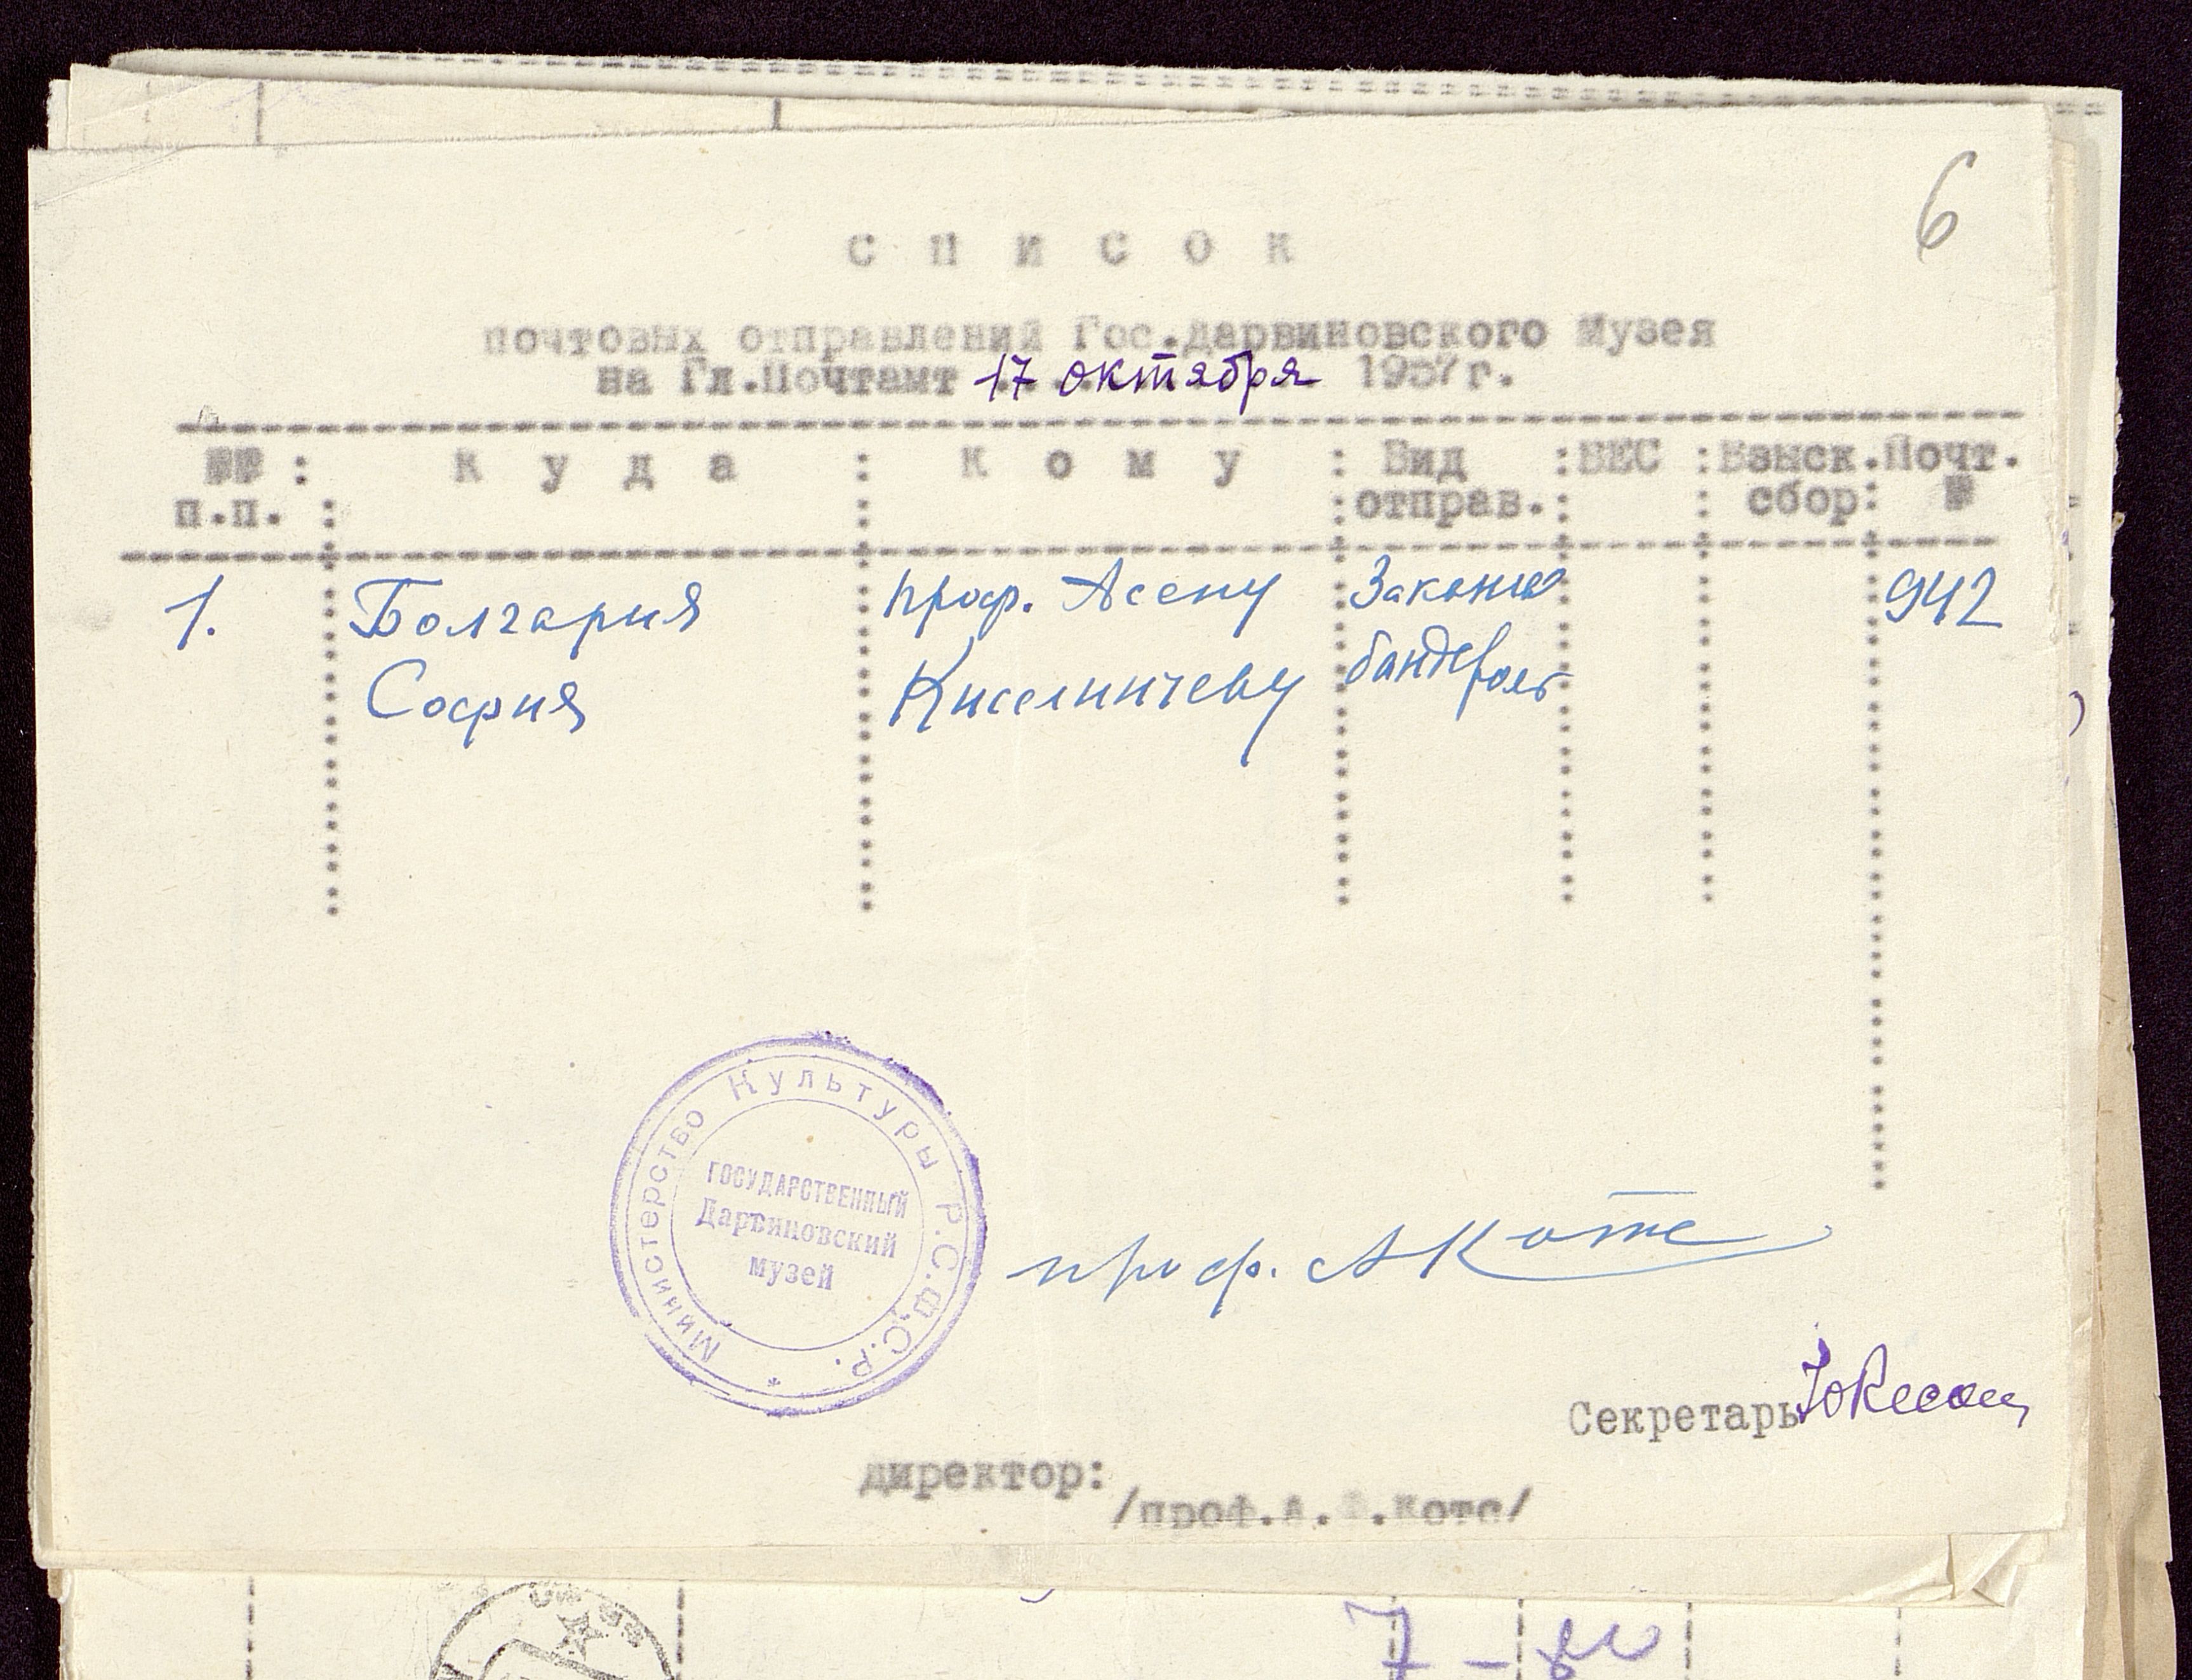 6
С П И С О К
почтовых отправлений Гос.Дарвиновского Музея
на Гл.Почтамт 17 октября 1957г.
№№ : К у д а : К о м у : Вид : ВЕС : Взыск. Почт.
п.п. : : : отправ. : : сбор : №
1. Болгария проф. Асену Заказная 942
София Киселинчеву бандероль
Министерство Культуры Р.С.Ф.С.Р. *
ГОСУДАРСТВЕННЫЙ
Дарвиновский
музей
проф. А Котс
Секретарь
директор:
/проф.А.Ф.Котс/
7 -